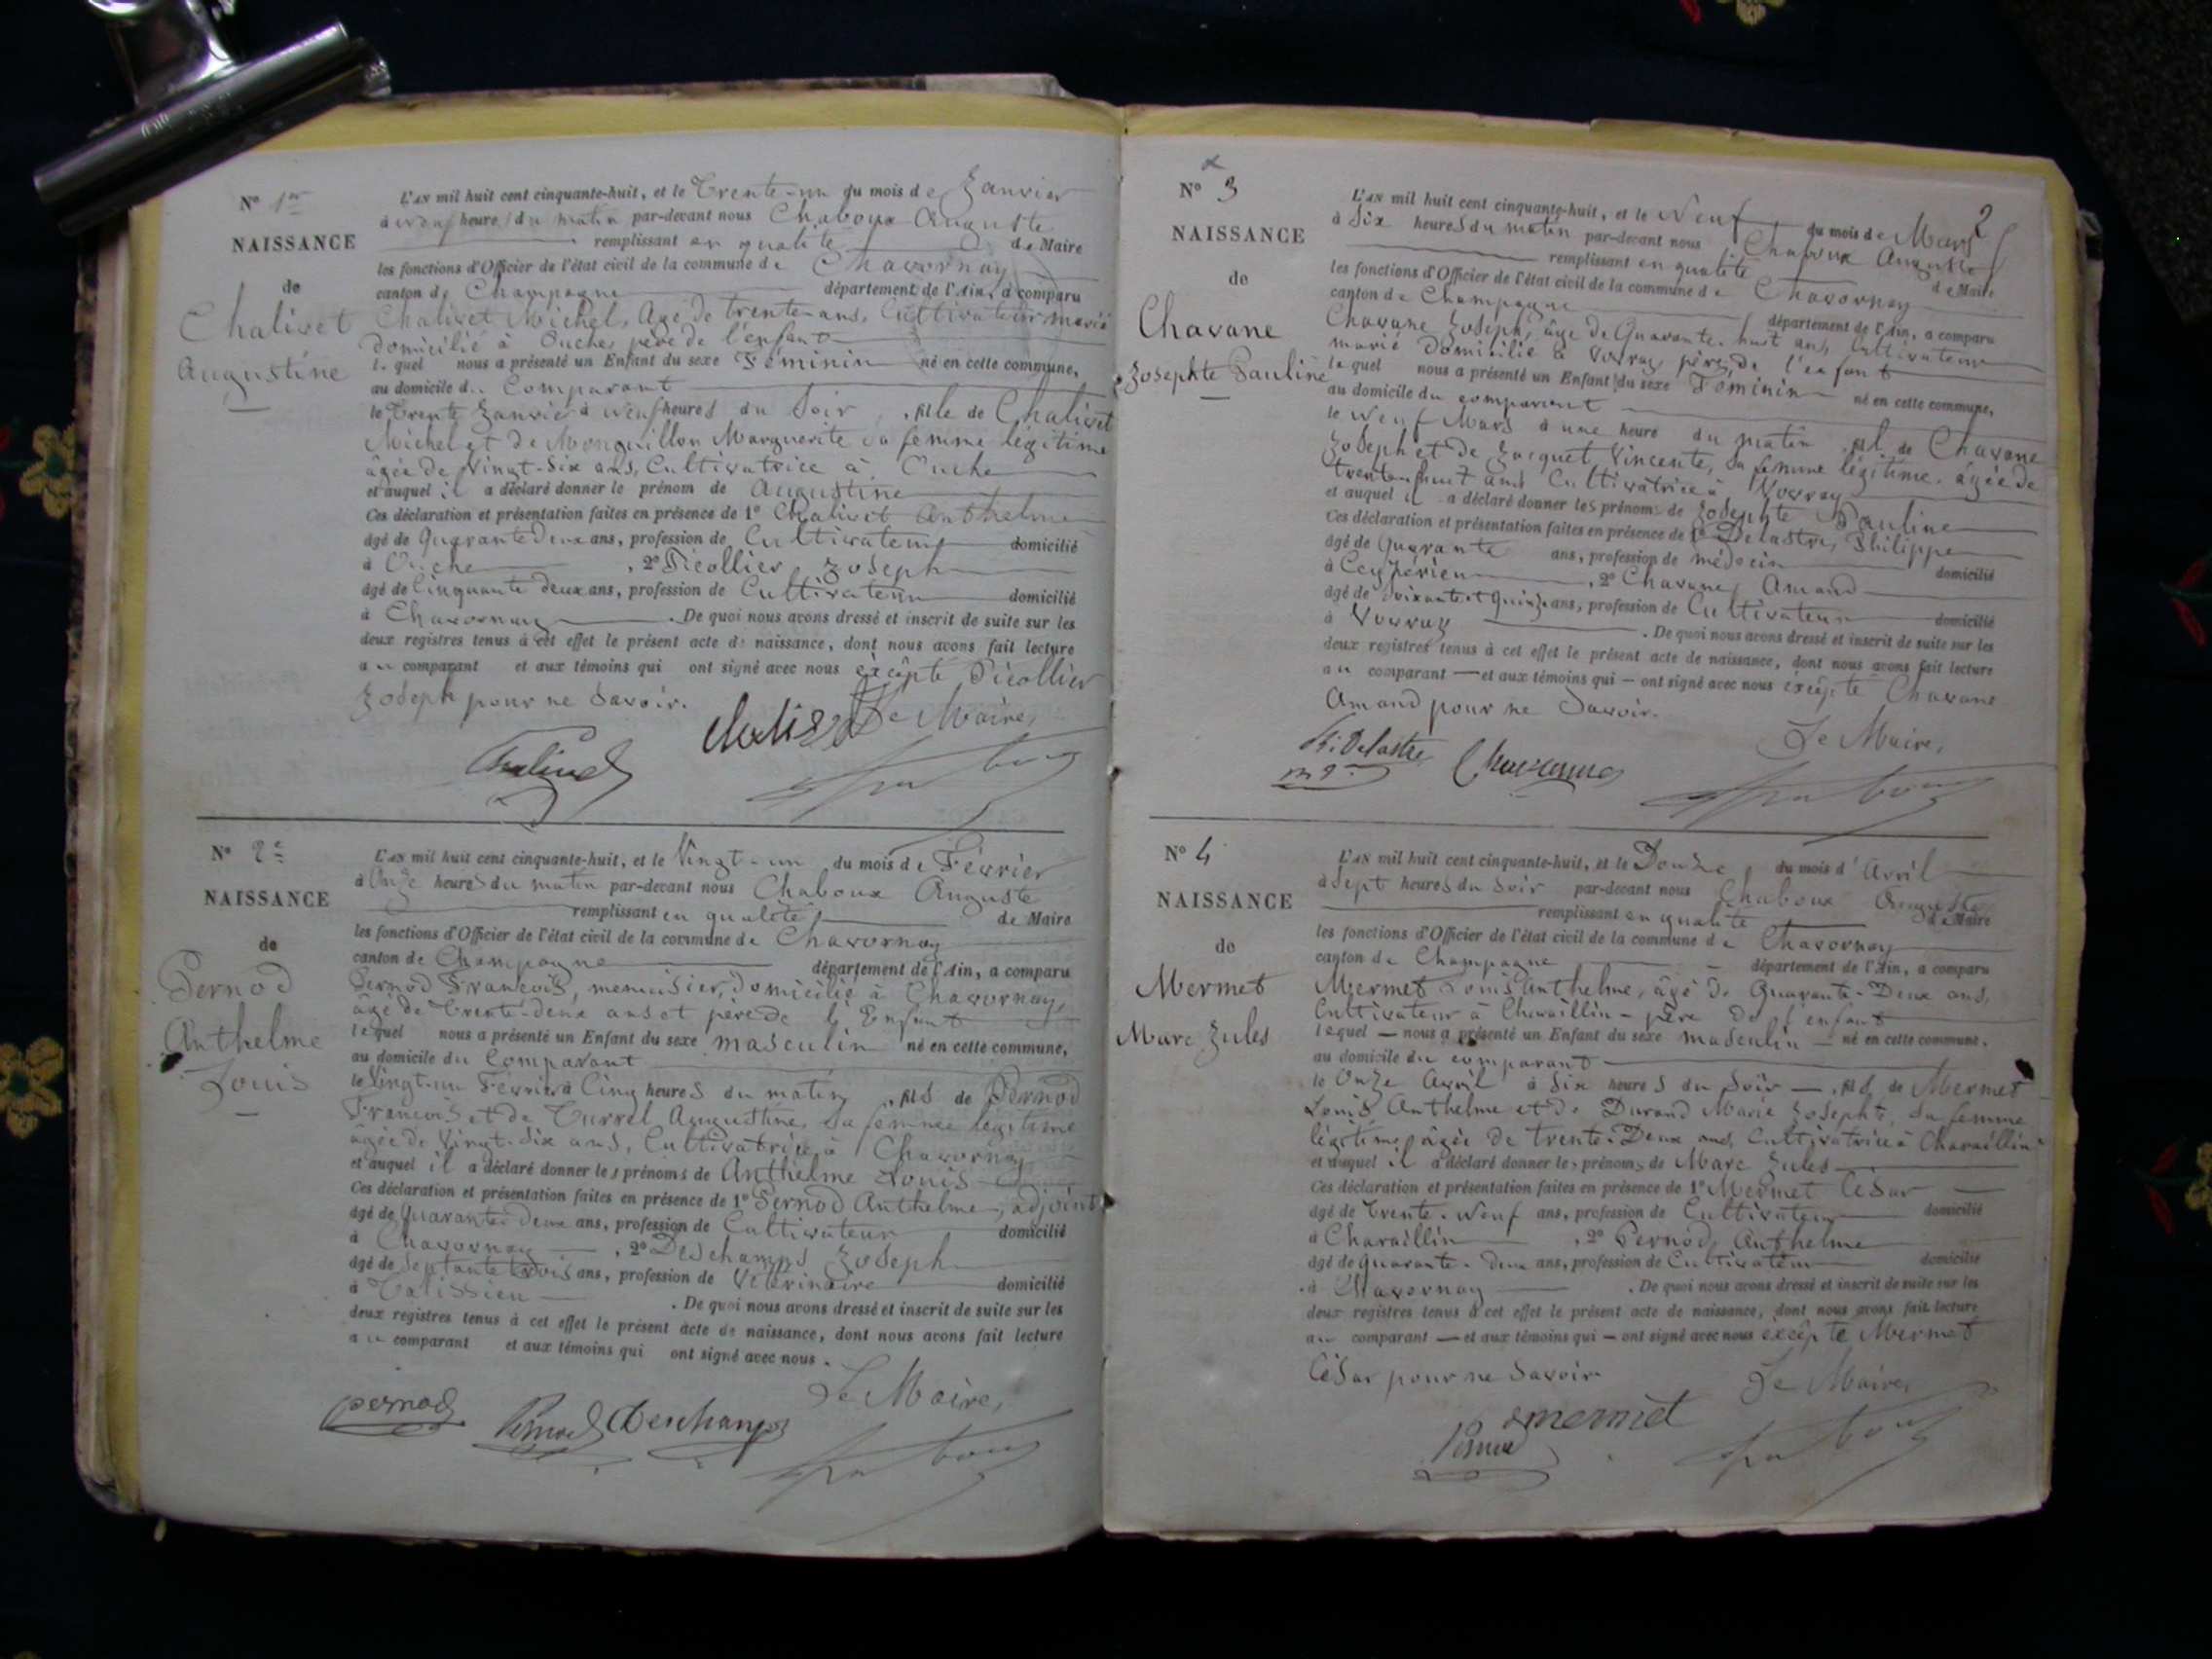 N° 1er
NAISSANCE
de
Chalivet
Augustine
L'AN mil huit cent cinquante-huit, et le Trente-un du mois de Janvier
à neuf heures du matin par-devant nous Chaboux Auguste
remplissant en qualité de Maire
les fonctions d'Officier de l'état civil de la commune de Chavornay
canton de Champagne département de l'Ain, a comparu
Chalivet Michel, Agé de trente ans, Cultivateur marié
domicilié à Ouche, père de l'enfant
lequel nous a présenté un Enfant du sexe Féminin né en cette commune,
au domicile du Comparant
le Trente Janvier à neuf heures du Soir, fille de Chalivet
Michel et de Monguillon Marguerite sa femme légitime
âgée de Vingt-Six ans, Cultivatrice à Ouche
et auquel il a déclaré donner le prénom de Augustine
Ces déclaration et présentation faites en présence de 1° Chalivet Anthelme
âgé de Quarante Deux ans, profession de Cultivateur domicilié
à Ouche, 2° Picollier Joseph
âgé de Cinquante deux ans, profession de Cultivateur domicilié
à Chavornay. De quoi nous avons dressé et inscrit de suite sur les
deux registres tenus à cet effet le présent acte de naissance, dont nous avons fait lecture
au comparant et aux témoins qui ont signé avec nous excépté Picollier
Joseph pour ne Savoir.
Le Maire,
Chalivet
N° 2e
NAISSANCE
de
Pernod
Anthelme
Louis
L'AN mil huit cent cinquante-huit, et le Vingt-un du mois de Février
à Onze heures du matin par-devant nous Chaboux Auguste
remplissant en qualité de Maire
les fonctions d'Officier de l'état civil de la commune de Chavornay
canton de Champagne département de l'Ain, a comparu
Pernod François, menuisier, domicilié à Chavornay,
âgé de Trente-deux ans et père de l'Enfant
lequel nous a présenté un Enfant du sexe masculin né en cette commune,
au domicile du Comparant
le Vingt-un Février à Cinq heures du matin, fils de Pernod
François et de Turrel Augustine, Sa femme légitime
âgée de Vingt-Six ans, Cultivatrice à Chavornay
et auquel il a déclaré donner les prénoms de Anthelme Louis
Ces déclaration et présentation faites en présence de 1° Pernod Anthelme, adjoint
âgé de Quarante Deux ans, profession de Cultivateur domicilié
à Chavornay, 2° Deschamps Joseph
âgé de Septante trois ans, profession de Vétérinaire domicilié
à Talissieu. De quoi nous avons dressé et inscrit de suite sur les
deux registres tenus à cet effet le présent acte de naissance, dont nous avons fait lecture
au comparant et aux témoins qui ont signé avec nous.
Le Maire,
pernod Pernod Deschamps
2
N° 3
NAISSANCE
de
Chavane
Josephte Pauline
L'AN mil huit cent cinquante-huit, et le Neuf du mois de Mars
à Six heures du matin par-devant nous Chaboux Auguste
remplissant en qualité de Maire
les fonctions d'Officier de l'état civil de la commune de Chavornay
canton de Champagne département de l'Ain, a comparu
Chavane Joseph, âgé de Quarante-huit ans, Cultivateur
marié domicilié à Vovray père de l'enfant
lequel nous a présenté un Enfant du sexe Féminin né en cette commune,
au domicile du comparant
le Neuf Mars à une heure du matin, fil de Chavane
Joseph et de Jacquet Vincente, Sa femme légitime, âgée de
trente-huit ans Cultivatrice à Vovray
et auquel il a déclaré donner les prénoms de Josephte Pauline
Ces déclaration et présentation faites en présence de 1° Delastre, Philippe
âgé de Quarante ans, profession de médecin domicilié
à Ceyzérieu, 2° Chavane, Amand
âgé de Soixante et Quinze ans, profession de Cultivateur domicilié
à Vovray. De quoi nous avons dressé et inscrit de suite sur les
deux registres tenus à cet effet le présent acte de naissance, dont nous avons fait lecture
au comparant et aux témoins qui ont signé avec nous excépté Chavane
Amand pour ne Savoir.
Le Maire,
Delastre
N° 4
NAISSANCE
de
Mermet
Marc Jules
L'AN mil huit cent cinquante-huit, et le Douze, du mois d'avril
à Sept heures du Soir par-devant nous Chaboux Auguste
remplissant en qualité de Maire
les fonctions d'Officier de l'état civil de la commune de Chavornay
canton de Champagne département de l'Ain, a comparu
Mermet Louis Anthelme, âgé de Quarante-Deux ans,
Cultivateur à Charaillin - père de l'enfant
lequel nous a présenté un Enfant du sexe masculin né en cette commune,
au domicile du comparant
le Onze Avril à Six heures du Soir, fils de Mermet
Louis Anthelme et de Durand Marie Josephte, Sa femme
légitime, âgée de trente-Deux ans, Cultivatrice à Charaillin
et auquel il a déclaré donner les prénoms de Marc Jules
Ces déclaration et présentation faites en présence de 1° Mermet César
âgé de Trente-Neuf ans, profession de Cultivateur domicilié
à Charaillin, 2° Pernod, Anthelme
âgé de Quarante-Deux ans, profession de Cultivateur domicilié
à Chavornay. De quoi nous avons dressé et inscrit de suite sur les
deux registres tenus à cet effet le présent acte de naissance, dont nous avons fait lecture
au comparant et aux témoins qui ont signé avec nous excépté Mermet
César pour ne Savoir.
Le Maire,
mermet
Pernod